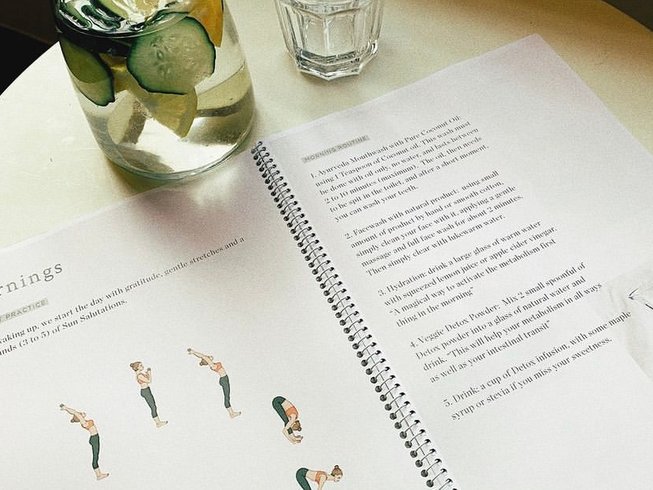 rnings
PRACTICE
aking up, we start the day with gratitude, gentle stretches and a
nds (3 to 5) of Sun Salutations.
MORNING ROUTINE
1. Ayurveda Mouthwash with Pure Coconut Oil:
using 1 Teaspoon of Coconut oil. This wash must
be done with oil only, no water, and lasts between
2 to 10 minutes (maximum). The oil, then needs
to be spit in the toilet, and after a short moment,
you can wash your teeth.
2. Facewash with natural product: using small
amount of product by hand or smooth cotton,
simply clean your face with it, applying a gentle
massage and full face wash for about 2 minutes.
Then simply clear with lukewarm water.
3. Hydration: drink a large glass of warm water
with squeezed lemon juice or apple cider vinegar.
"A magical way to activate the metabolism first
thing in the morning"
4. Veggie Detox Powder: Mix 2 small spoonful of
Detox powder into a glass of natural water and
drink. "This will help your metabolism in all ways
as well as your intestinal transit"
5. Drink: a cup of Detox infusion, with some maple
syrup or stevia if you miss your sweetness.